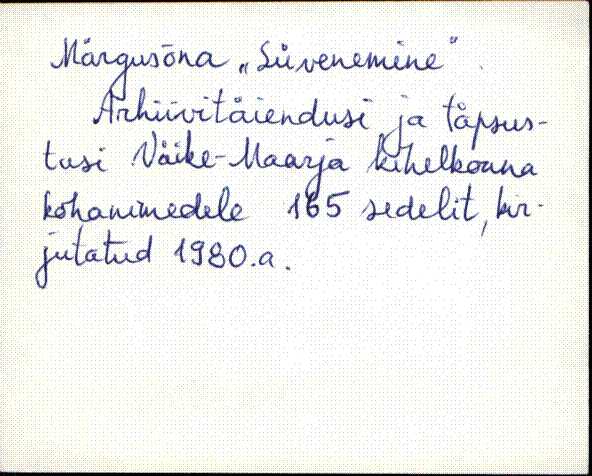 Märgusõna „Süvenemine".
Arhiivitäiendusi ja täpsus-
tusi Väike-Maarja kihelkonna
kohanimedele 165 sedelit, kir-
jutatud 1980.a.